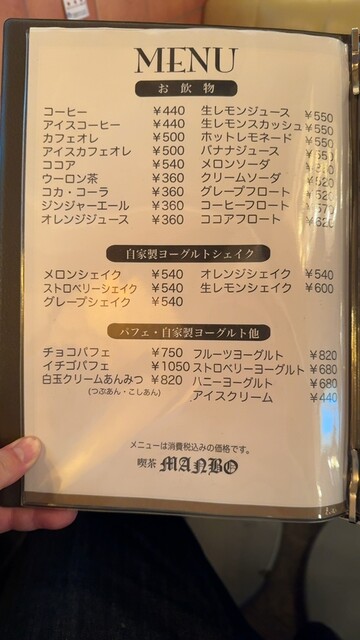 MENU
お飲物
コーヒー ¥440
アイスコーヒー ¥440
カフェオレ ¥500
アイスカフェオレ ¥500
ココア ¥540
ウーロン茶 ¥360
コカ・コーラ ¥360
ジンジャーエール ¥360
オレンジジュース ¥360
生レモンジュース ¥550
生レモンスカッシュ ¥550
ホットレモネード ¥550
バナナジュース ¥550
メロンソーダ
クリームソーダ
グレープフロート ¥520
コーヒーフロート
ココアフロート ¥620
自家製ヨーグルトシェイク
メロンシェイク ¥540
ストロベリーシェイク ¥540
グレープシェイク ¥540
オレンジシェイク ¥540
生レモンシェイク ¥600
パフェ・自家製ヨーグルト他
チョコパフェ ¥750
イチゴパフェ ¥1050
白玉クリームあんみつ ¥820
(つぶあん・こしあん)
フルーツヨーグルト ¥820
ストロベリーヨーグルト ¥680
ハニーヨーグルト ¥680
アイスクリーム ¥440
メニューは消費税込みの価格です。
喫茶 MANBO